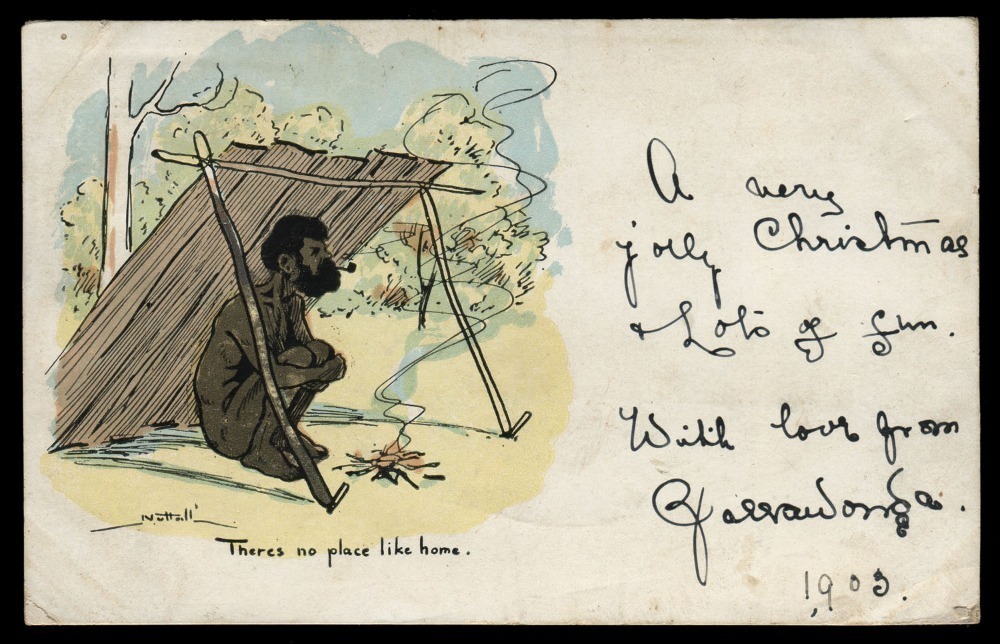 Nuttall
Theres no place like home.
A very
jolly Christmas
& Lots of fun.
With love from
Yarrawonga.
1903.